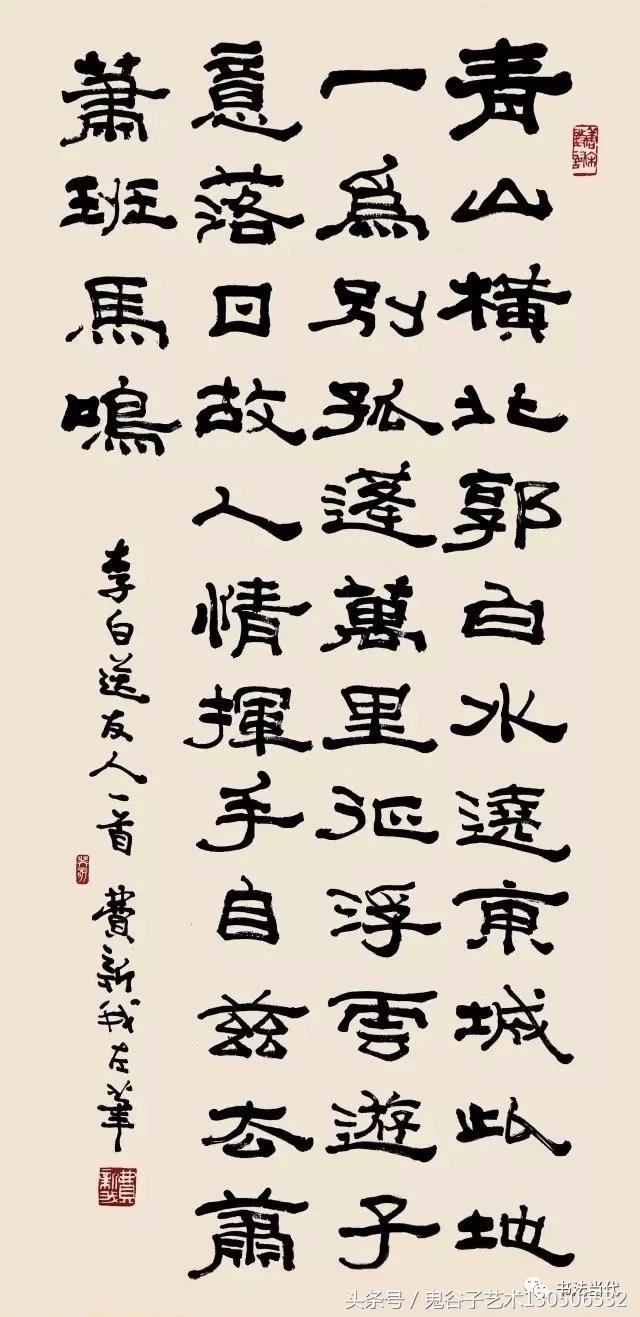 青山橫北郭白水遶東城此地
一爲別孤蓬萬里征浮雲遊子
意落日故人情揮手自茲去蕭
蕭班馬鳴
李白送友人一首 費新我左筆
費新我
书法当代
头条号 / 鬼谷子艺术130506332